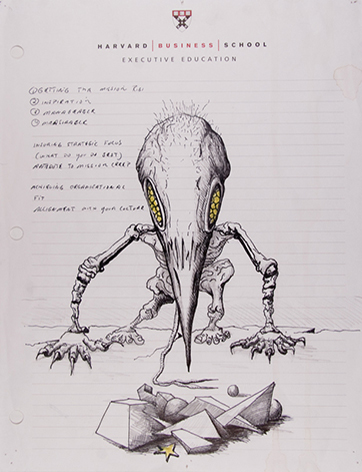 HARVARD | BUSINESS | SCHOOL
EXECUTIVE EDUCATION
① GETTING THA MISSION
② INSPIRATION
③ MANAGEABLE
④ MEASURABLE
STRATEGIC FOCUS
(WHAT DO YOU DO BEST)
TO MISSION
ACHIEVING ORGANIZATIONAL
FIT
ALIGNMENT WITH YOUR CULTURE